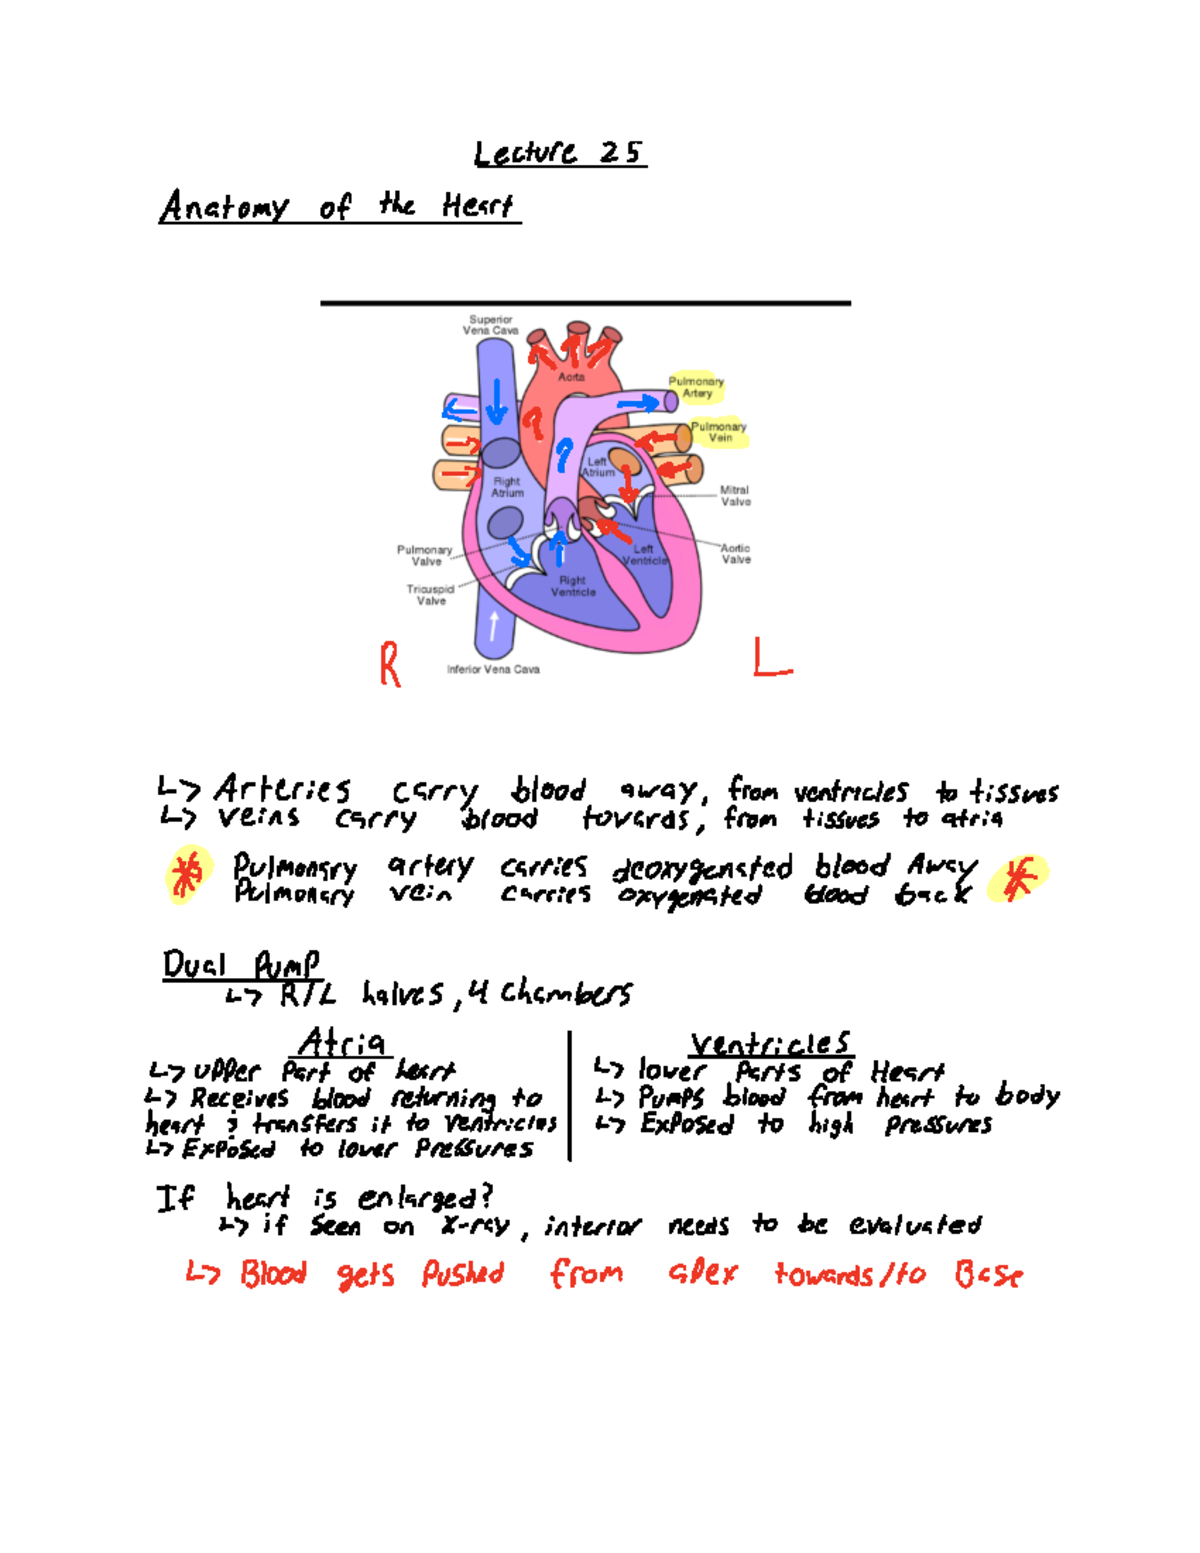 Lecture 25
Anatomy of the Heart
Superior
Vena Cava
Aorta
Pulmonary
Artery
Pulmonary
Vein
Left
Atrium
Right
Atrium
Mitral
Valve
Pulmonary
Valve
Aortic
Valve
Left
Ventricle
Right
Ventricle
Tricuspid
Valve
R
L
Inferior Vena Cava
↳ Arteries carry blood away, from ventricles to tissues
↳ veins carry blood towards, from tissues to atria
* Pulmonary artery carries deoxygenated blood Away *
Pulmonary vein carries oxygenated blood back
Dual Pump
↳ R/L halves, 4 chambers
Atria
↳ upper part of heart
↳ Receives blood returning to
heart & transfers it to ventricles
↳ Exposed to lower pressures
ventricles
↳ lower parts of Heart
↳ Pumps blood from heart to body
↳ Exposed to high pressures
If heart is enlarged?
↳ if seen on x-ray, interior needs to be evaluated
↳ Blood gets pushed from apex towards/to Base